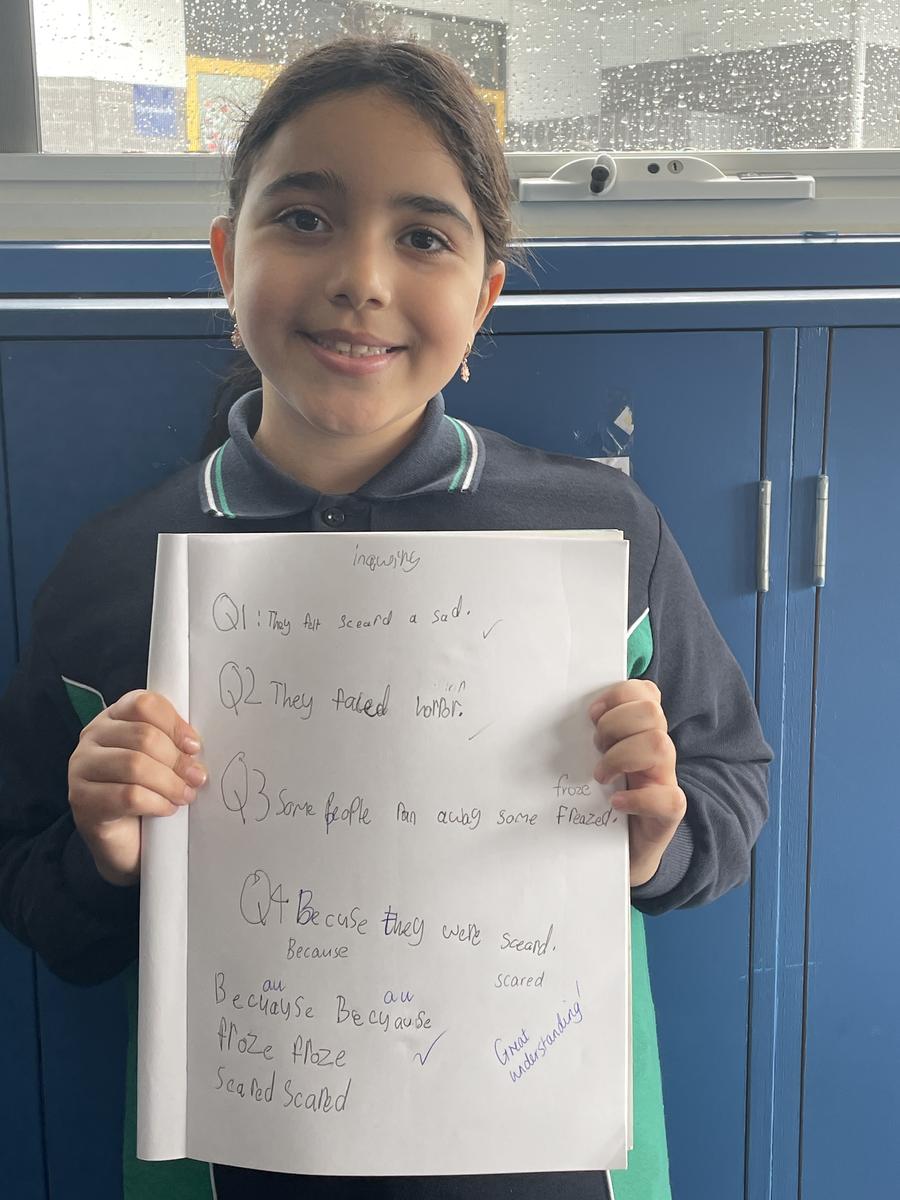 inquiring
Q1: They felt sceard a sad.
Q2 They faced horror.
froze
Q3 Some people ran away some Freazed.
Q4 Becuse they were sceard.
Because
scared
au au
Becuayse Becyause
froze froze
Scared Scared
Great
understanding!